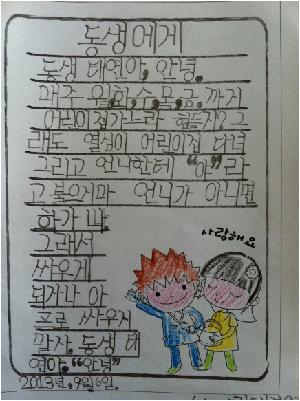 동생에게
동생 태연아, 안녕.
매주 월,화,수,목,금,까지
어린이집가느라 힘들지? 그
래도 열심이 어린이집 다녀
그리고 언니한테 "야"라
고 불으지마 언니가 아니면
화가 나.
그래서
싸우게
되거나 아
프로 싸우지
말자, 동생 태
연아, "안녕"
2013년, 9월 6일.
사랑해요